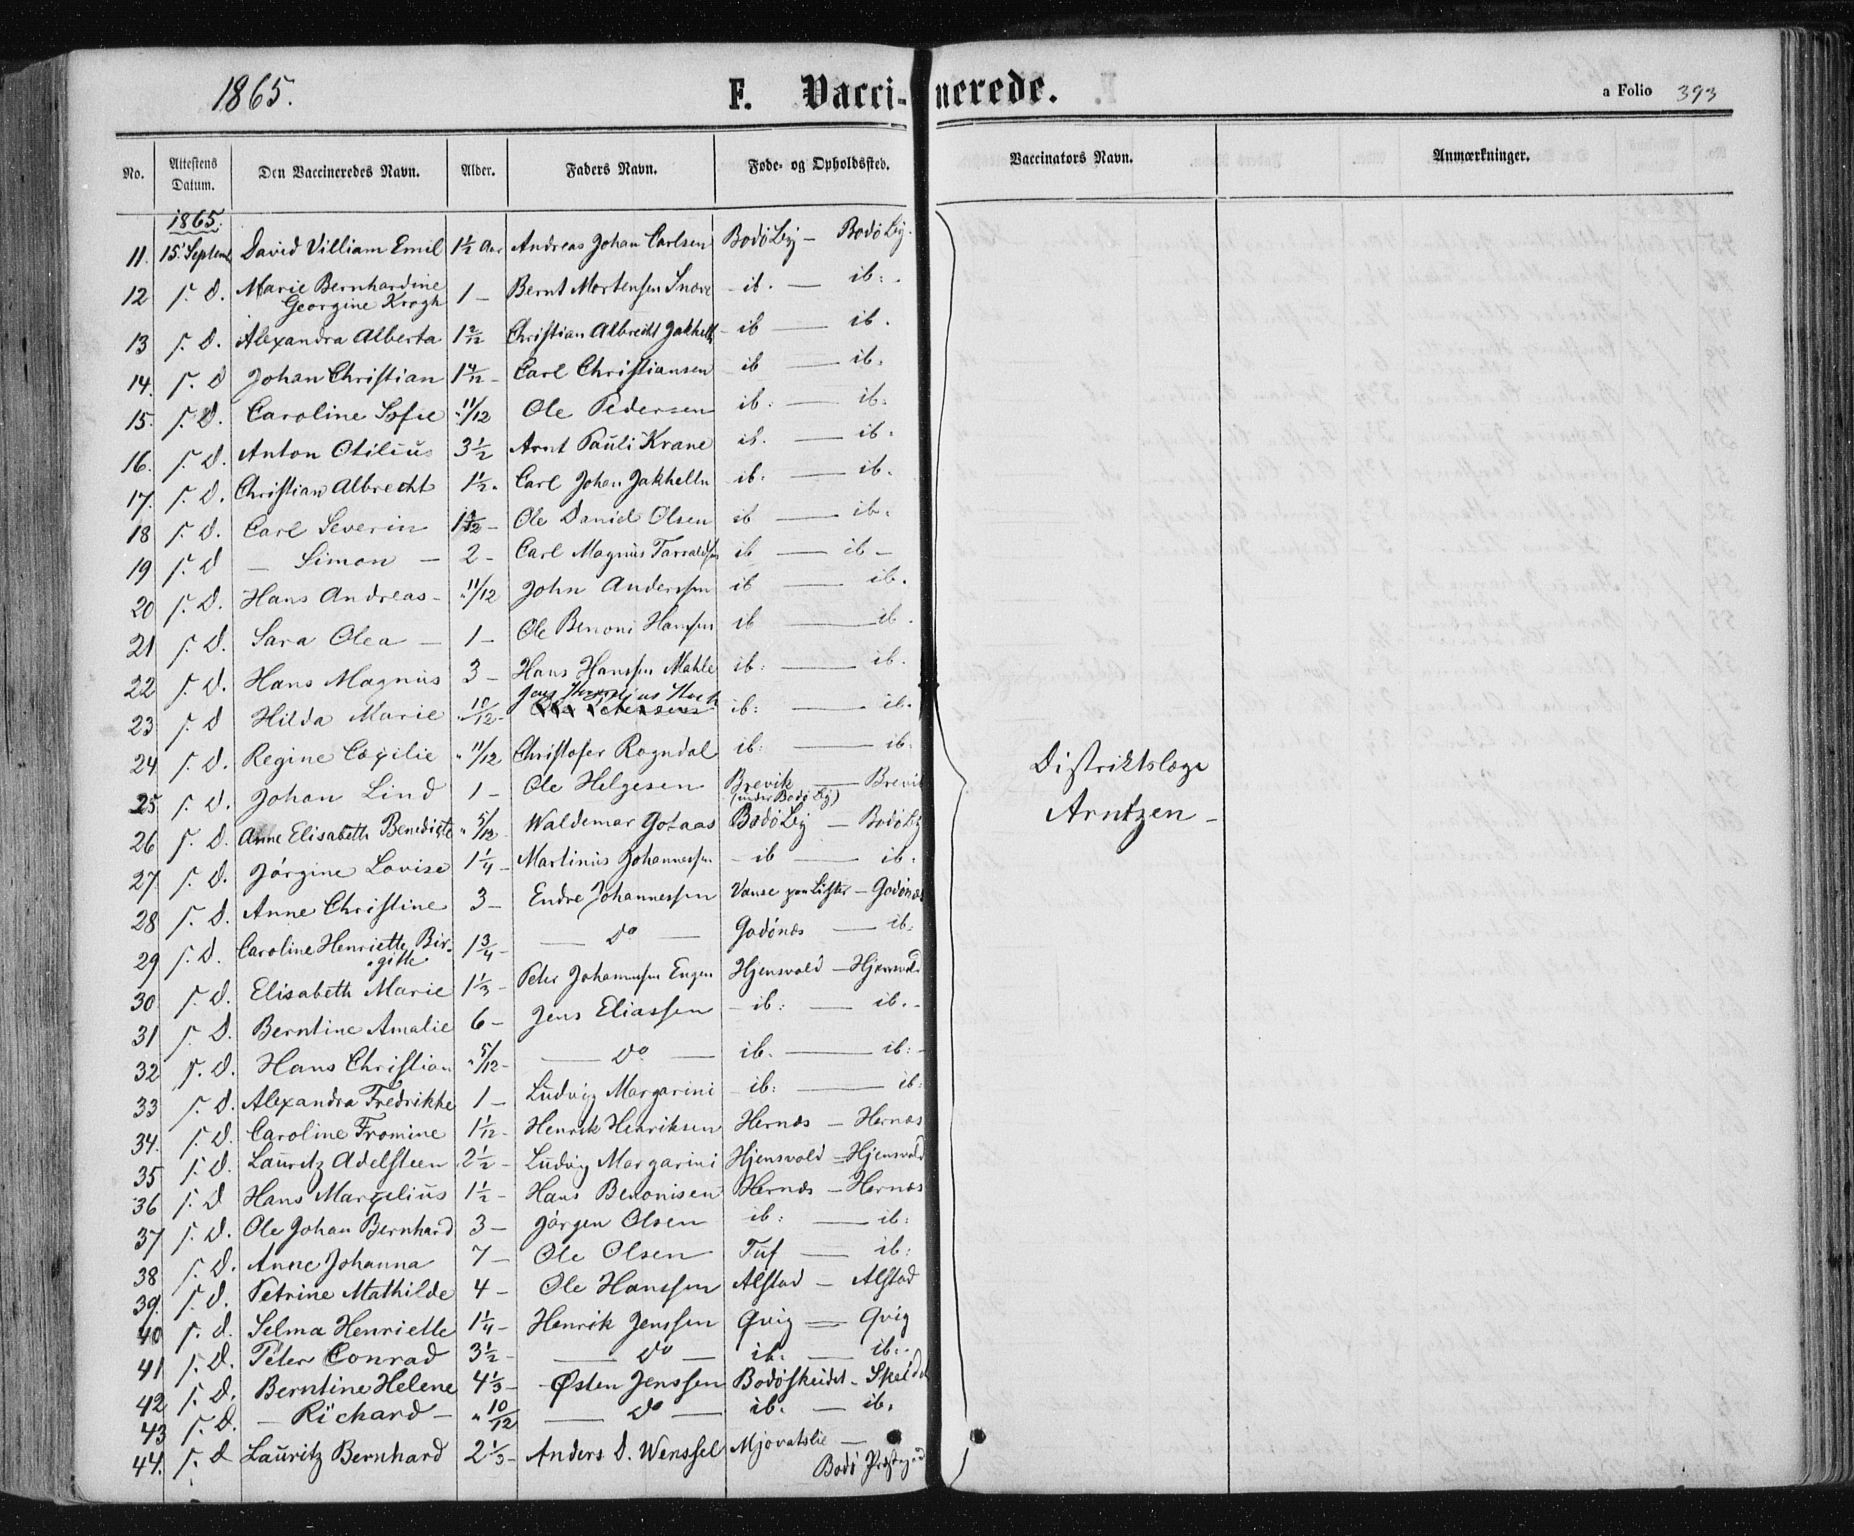 1865. F. Vacci- nerede. a Folio 393
No. Attestens Datum. Den Vaccineredes Navn. Alder. Faders Navn. Føde- og Opholdssted. Vaccinators Navn. Anmærkninger.
1865.
11. 15 Septemb David Villiam Emil 1 1/2 Aar Andreas Johan Carlsen Bodö By - Bodö By.
12 s. D. Marie Bernhardine 1 - Bernt Mortensen - ib. - ib.
Georgine Krogh
13 s. D. Alexandra Alberta 1 2/12 Christian Albrecht Jakhelln - ib - ib.
14. s. D Johan Christian 1 4/12 - Carl Christiansen - ib - ib.
15. s. D. Caroline Sofie " 11/12 Ole Pedersen ib. - ib.
16. s. D. Anton Otilius 3 1/2 Arnt Pauli Krane ib. - ib.
17. s. D. Christian Albrecht 1 1/2 - Carl Johan Jakhelln ib. - ib.
18 s. D. Carl Severin Ole Daniel Olsen ib - ib.
19 s. D - Simon - 2 - Carl Magnus ib - ib -
20 s. D. Hans Andreas - " 11/12 John Anderssen ib - ib.
21 s. D. Sara Olea - 1 - Ole Benoni Hansen ib - ib.
22 s. D. Hans Magnus 3 - Hans Hanssen Mahle ib: - ib.
23 s. D Hilda Marie " 10/12 - Jens ib: - ib.
24 s. D. Regine Cecilie " 11/12 Christofer Rogndal ib. - ib.
25 s. D. Johan Lind 1 - Ole Helgesen Brevik - Brevik
(under Bodö By)
26 s. D. Anne Elisabeth Benedicte " 5/12 - Waldemar Gotaas Bodö By - Bodö By
27 s. D. Jörgine Lovise 1 1/4 - Martinus Johannessen - ib - ib.
28 s. D. Anne Christine 3 - Endre Johannessen Vanse paa Lister - Godönæs
29 s. D. Caroline Henriette Bir- 1 3/4 - - Do - Godönæs - ib.
gitte
30 s. D. Elisabeth Marie 1 1/3 - Peter Johannessen Engen Hjensvold - Hjensvold
31 s. D. Berntine Amalie 6 - Jens Eliassen - ib: - ib. -
32 s. D. Hans Christian " 5/12 - - Do - ib. - ib: -
33 s. D. Alexandra Fredrikke 1 - Ludvig Margarini - ib: - ib:
34. s. D. Caroline Fromine 1 1/12 - Henrik Henriksen Hernæs - Hernæs
35 s. D. Lauritz Adelsteen 2 1/2 - Ludvig Margarini Hjensvold - Hjensvold
36 s. D Hans Marcelius 1 1/2 - Hans Benonisen Hernæs - Hernæs
37 s. D. Ole Johan Bernhard 3 - Jörgen Olsen ib: - ib:
38 s. D. Anne Johanna 7 - Ole Olsen Tuf - ib:
39. s. D. Petrine Mathilde 4 - Ole Hanssen Alstad - Alstad
40 s. D. Selma Henriette 1 1/4 - Henrik Jenssen Qvig - Qvig
41 s. D. Peter Conrad 3 1/2 - - Do - ib. - ib. -
42 s. D. Berntine Helene 4 1/3 - Østen Jenssen Bodöskeidet -
43 s. D. - Richard - " 10/12 - Do - ib. - ib.
44. s. D Lauritz Bernhard 2 1/3 - Anders D. Wenssel -
Bodö
Distriktslæge
Arntzen -